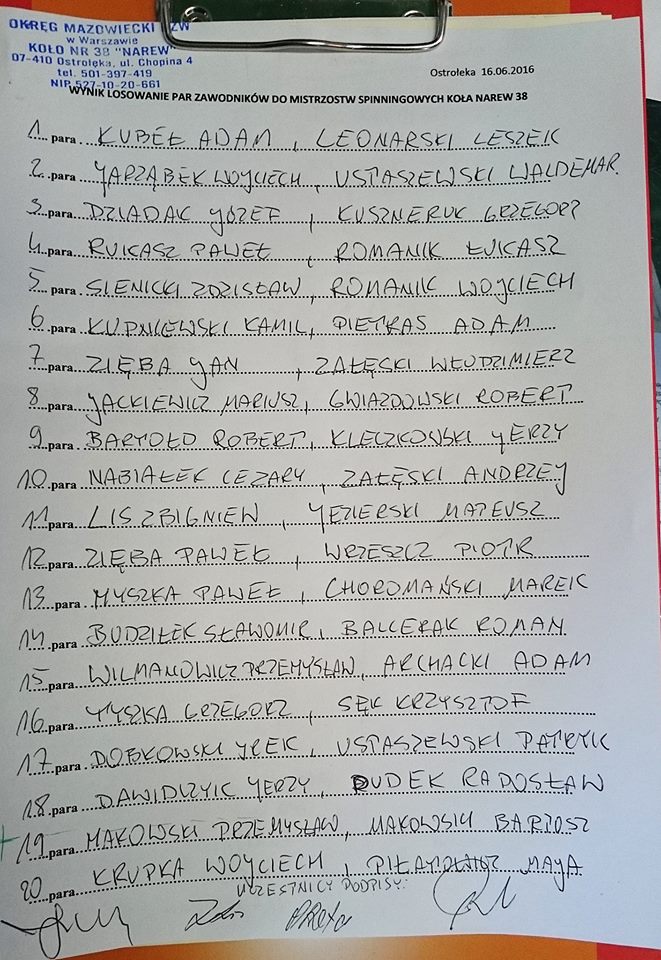 OKRĘG MAZOWIECKI PZW
w Warszawie
KOŁO NR 38 "NAREW"
07-410 Ostrołęka, ul. Chopina 4
tel. 501-397-419
NIP 527-10-20-661
Ostrołeka 16.06.2016
WYNIK LOSOWANIE PAR ZAWODNIKÓW DO MISTRZOSTW SPINNINGOWYCH KOŁA NAREW 38
1 para KUBEŁ ADAM, LEONARSKI LESZEK
2 para JARZĄBEK WOJCIECH, USTASZEWSKI WALDEMAR.
3 para DZIADAK JÓZEF, KUSZNERUK GRZEGORZ
4 para RUKASZ PAWEŁ, ROMANIK ŁUKASZ
5 para SIENICKI ZDZISŁAW, ROMANIK WOJCIECH
6 para KUPNIEWSKI KAMIL, PIETRAS ADAM
7 para ZIĘBA JAN, ZAŁĘSKI WŁODZIMIERZ
8 para JACKIEWICZ MARIUSZ, GWIAZDOWSKI ROBERT
9 para BARTOŁD ROBERT, KLECZKOWSKI JERZY
10 para NABIAŁEK CEZARY, ZAŁĘSKI ANDRZEJ
11 para LIS ZBIGNIEW, JEZIERSKI MATEUSZ
12 para ZIĘBA PAWEŁ, WRZESZCZ PIOTR
13 para MYSZKA PAWEŁ, CHOROMAŃSKI MAREK
14 para BUDZIŁEK SŁAWOMIR, BALCERAK ROMAN
15 para WILMANOWICZ PRZEMYSŁAW, ARCHACKI ADAM
16 para TYSZKA GRZEGORZ, SĘK KRZYSZTOF
17 para DOBKOWSKI IREK, USTASZEWSKI PATRYK
18 para DAWIDCZYK JERZY, DUDEK RADOSŁAW
19 para MAKOWSKI PRZEMYSŁAW, MAKOWSKI BARTOSZ
20 para KRUPKA WOJCIECH, MAJA
UCZESTNICY PODPISY: